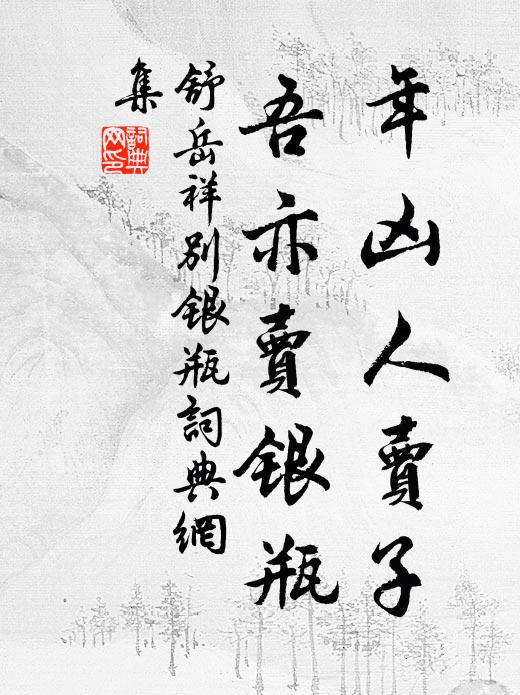 年凶人賣子
吾亦賣銀瓶
舒岳祥別銀瓶詞典網
集
詞典網印